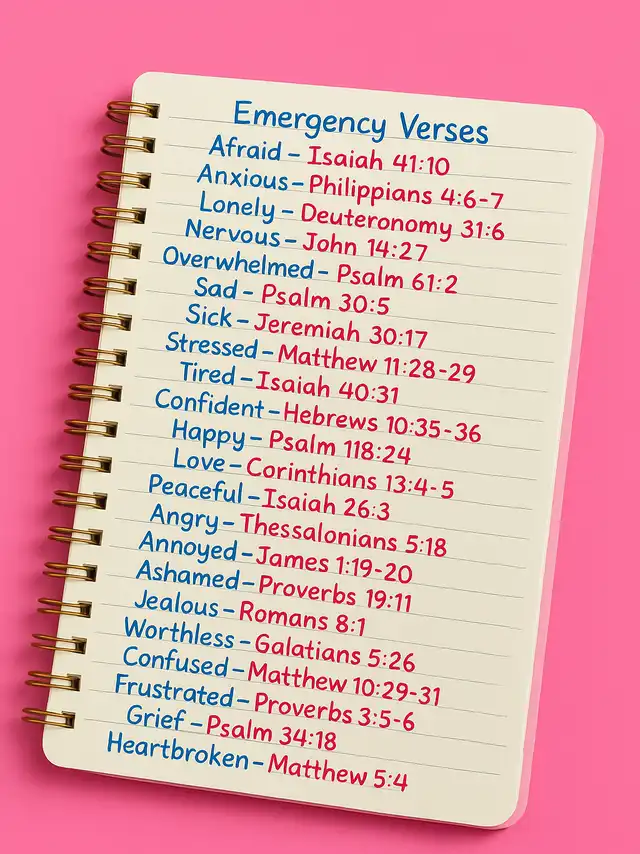 Emergency Verses
Afraid – Isaiah 41:10
Anxious – Philippians 4:6-7
Lonely – Deuteronomy 31:6
Nervous – John 14:27
Overwhelmed – Psalm 61:2
Sad – Psalm 30:5
Sick – Jeremiah 30:17
Stressed – Matthew 11:28-29
Tired – Isaiah 40:31
Confident – Hebrews 10:35-36
Happy – Psalm 118:24
Love – Corinthians 13:4-5
Peaceful – Isaiah 26:3
Angry – Thessalonians 5:18
Annoyed – James 1:19-20
Ashamed – Proverbs 19:11
Jealous – Romans 8:1
Worthless – Galatians 5:26
Confused – Matthew 10:29-31
Frustrated – Proverbs 3:5-6
Grief – Psalm 34:18
Heartbroken – Matthew 5:4